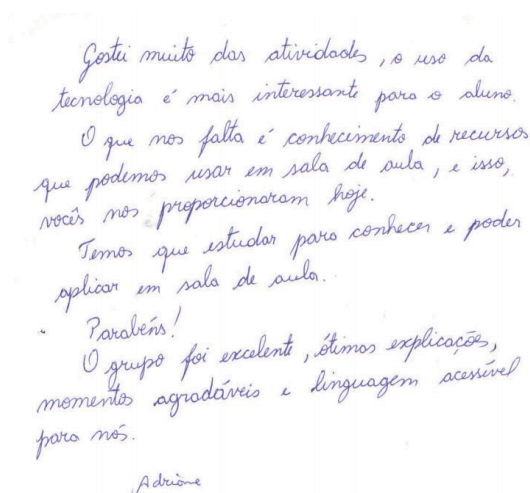 Gostei muito das atividades, o uso da
tecnologia é mais interessante para o aluno.
O que nos falta é conhecimento de recursos
que podemos usar em sala de aula, e isso,
vocês nos proporcionaram hoje.
Temos que estudar para conhecer e poder
aplicar em sala de aula.
Parabéns!
O grupo foi excelente, ótimas explicações,
momentos agradáveis e linguagem acessível
para nós.
Adriane